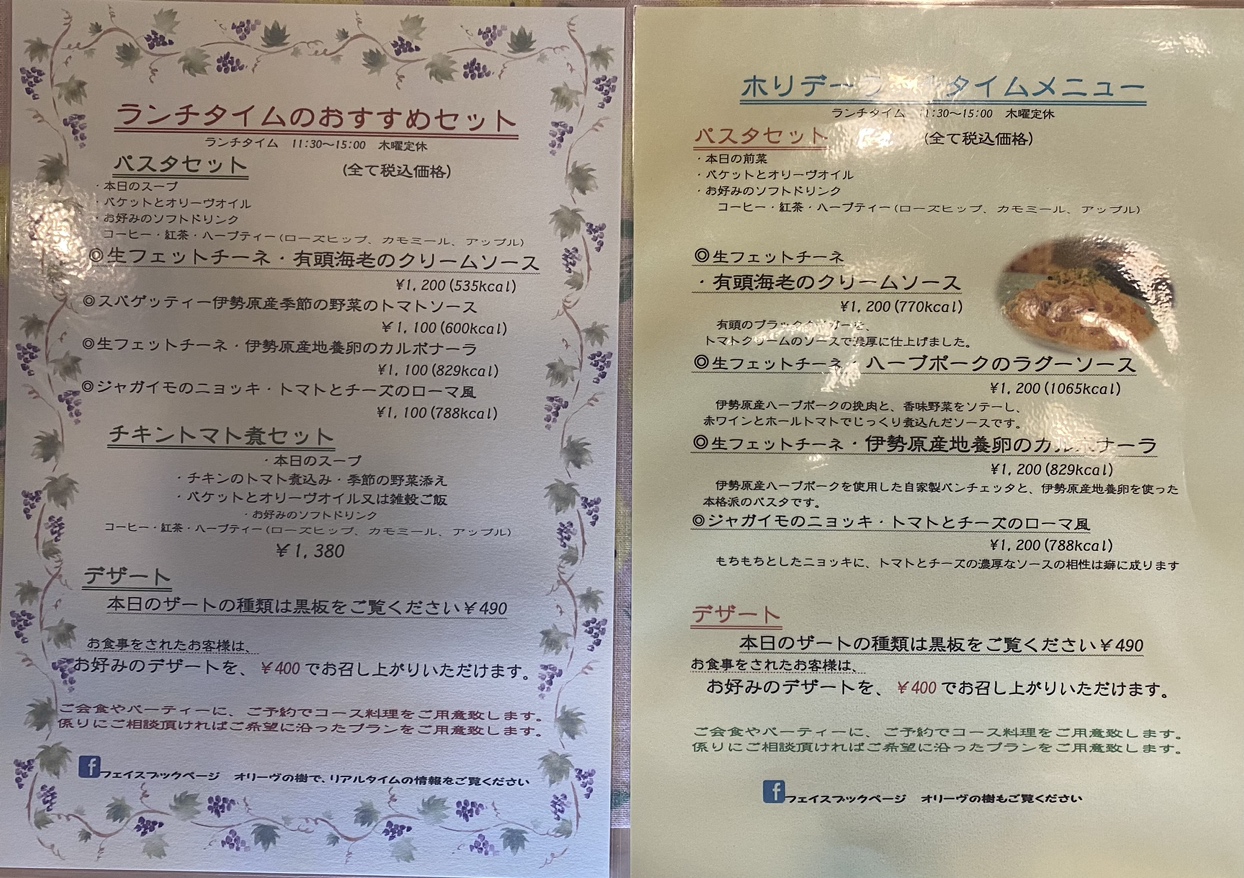 ランチタイムのおすすめセット
ランチタイム 11:30～15:00 木曜定休
パスタセット (全て税込価格)
・本日のスープ
・バケットとオリーヴオイル
・お好みのソフトドリンク
コーヒー・紅茶・ハーブティー(ローズヒップ、カモミール、アップル)
◎生フェットチーネ・有頭海老のクリームソース
¥1,200(535kcal)
◎スパゲッティー伊勢原産季節の野菜のトマトソース
¥1,100(600kcal)
◎生フェットチーネ・伊勢原産地養卵のカルボナーラ
¥1,100(829kcal)
◎ジャガイモのニョッキ・トマトとチーズのローマ風
¥1,100(788kcal)
チキントマト煮セット
・本日のスープ
・チキンのトマト煮込み・季節の野菜添え
・バケットとオリーヴオイル又は雑穀ご飯
・お好みのソフトドリンク
コーヒー・紅茶・ハーブティー(ローズヒップ、カモミール、アップル)
¥1,380
デザート
本日のザートの種類は黒板をご覧ください¥490
お食事をされたお客様は、
お好みのデザートを、¥400でお召し上がりいただけます。
ご会食やパーティーに、ご予約でコース料理をご用意致します。
係りにご相談頂ければご希望に沿ったプランをご用意致します。
フェイスブックページ オリーヴの樹で、リアルタイムの情報をご覧ください
ホリデー タイムメニュー
ランチタイム 11:30～15:00 木曜定休
パスタセット (全て税込価格)
・本日の前菜
・バケットとオリーヴオイル
・お好みのソフトドリンク
コーヒー・紅茶・ハーブティー(ローズヒップ、カモミール、アップル)
◎生フェットチーネ
・有頭海老のクリームソース
¥1,200(770kcal)
有頭のブラック を、
トマトクリームのソースで濃厚に仕上げました。
◎生フェットチーネ・ハーブポークのラグーソース
¥1,200(1065kcal)
伊勢原産ハーブポークの挽肉と、香味野菜をソテーし、
赤ワインとホールトマトでじっくり煮込んだソースです。
◎生フェットチーネ・伊勢原産地養卵のカルボナーラ
¥1,200(829kcal)
伊勢原産ハーブポークを使用した自家製パンチェッタと、伊勢原産地養卵を使った
本格派のパスタです。
◎ジャガイモのニョッキ・トマトとチーズのローマ風
¥1,200(788kcal)
もちもちとしたニョッキに、トマトとチーズの濃厚なソースの相性は癖に成ります
デザート
本日のザートの種類は黒板をご覧ください¥490
お食事をされたお客様は、
お好みのデザートを、¥400でお召し上がりいただけます。
ご会食やパーティーに、ご予約でコース料理をご用意致します。
係りにご相談頂ければご希望に沿ったプランをご用意致します。
フェイスブックページ オリーヴの樹もご覧ください